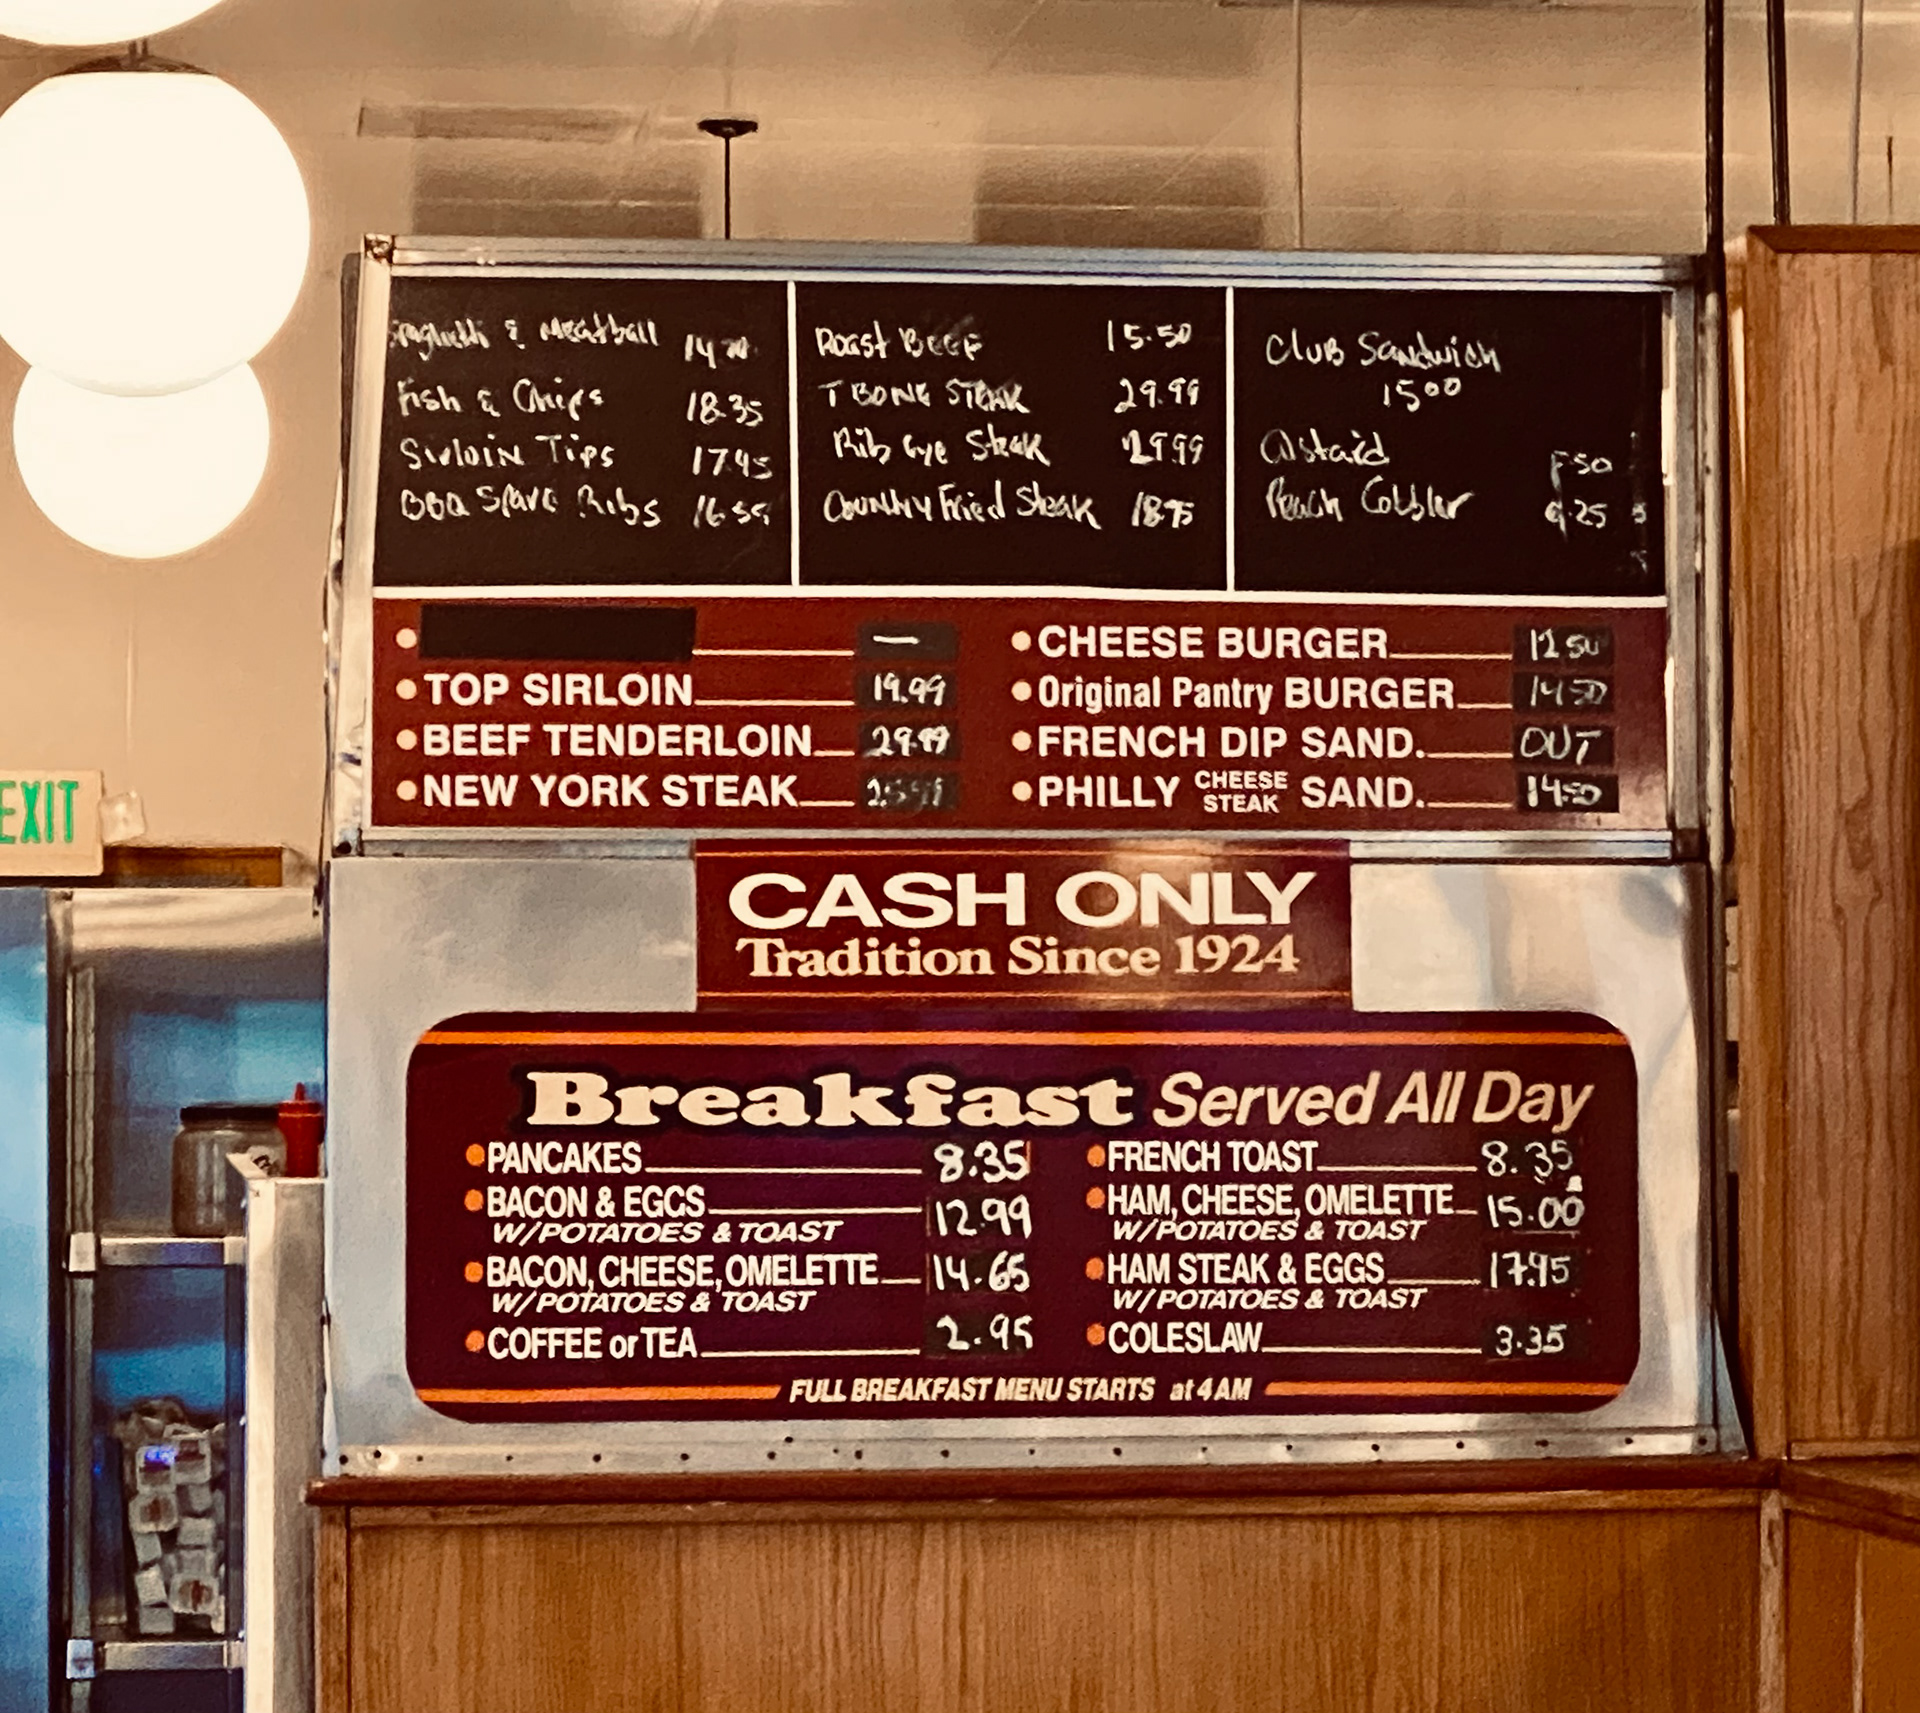 Spaghetti & Meatball 14
Fish & Chips 18.35
Sirloin Tips 17.95
BBQ Spare Ribs 16.55
Roast Beef 15.50
T BONE STEAK 29.99
Rib Eye Steak 29.99
Country Fried Steak 18.95
Club Sandwich
15.00
Peach Cobbler
TOP SIRLOIN 19.99
BEEF TENDERLOIN 29.99
NEW YORK STEAK
CHEESE BURGER 12.50
Original Pantry BURGER 14.50
FRENCH DIP SAND. OUT
PHILLY CHEESE STEAK SAND. 14.50
CASH ONLY
Tradition Since 1924
Breakfast Served All Day
PANCAKES 8.35
BACON & EGGS 12.99
W/POTATOES & TOAST
BACON, CHEESE, OMELETTE 14.65
W/POTATOES & TOAST
COFFEE or TEA 2.95
FRENCH TOAST 8.35
HAM, CHEESE, OMELETTE 15.00
W/POTATOES & TOAST
HAM STEAK & EGGS 17.95
W/POTATOES & TOAST
COLESLAW 3.35
FULL BREAKFAST MENU STARTS at 4 AM
EXIT